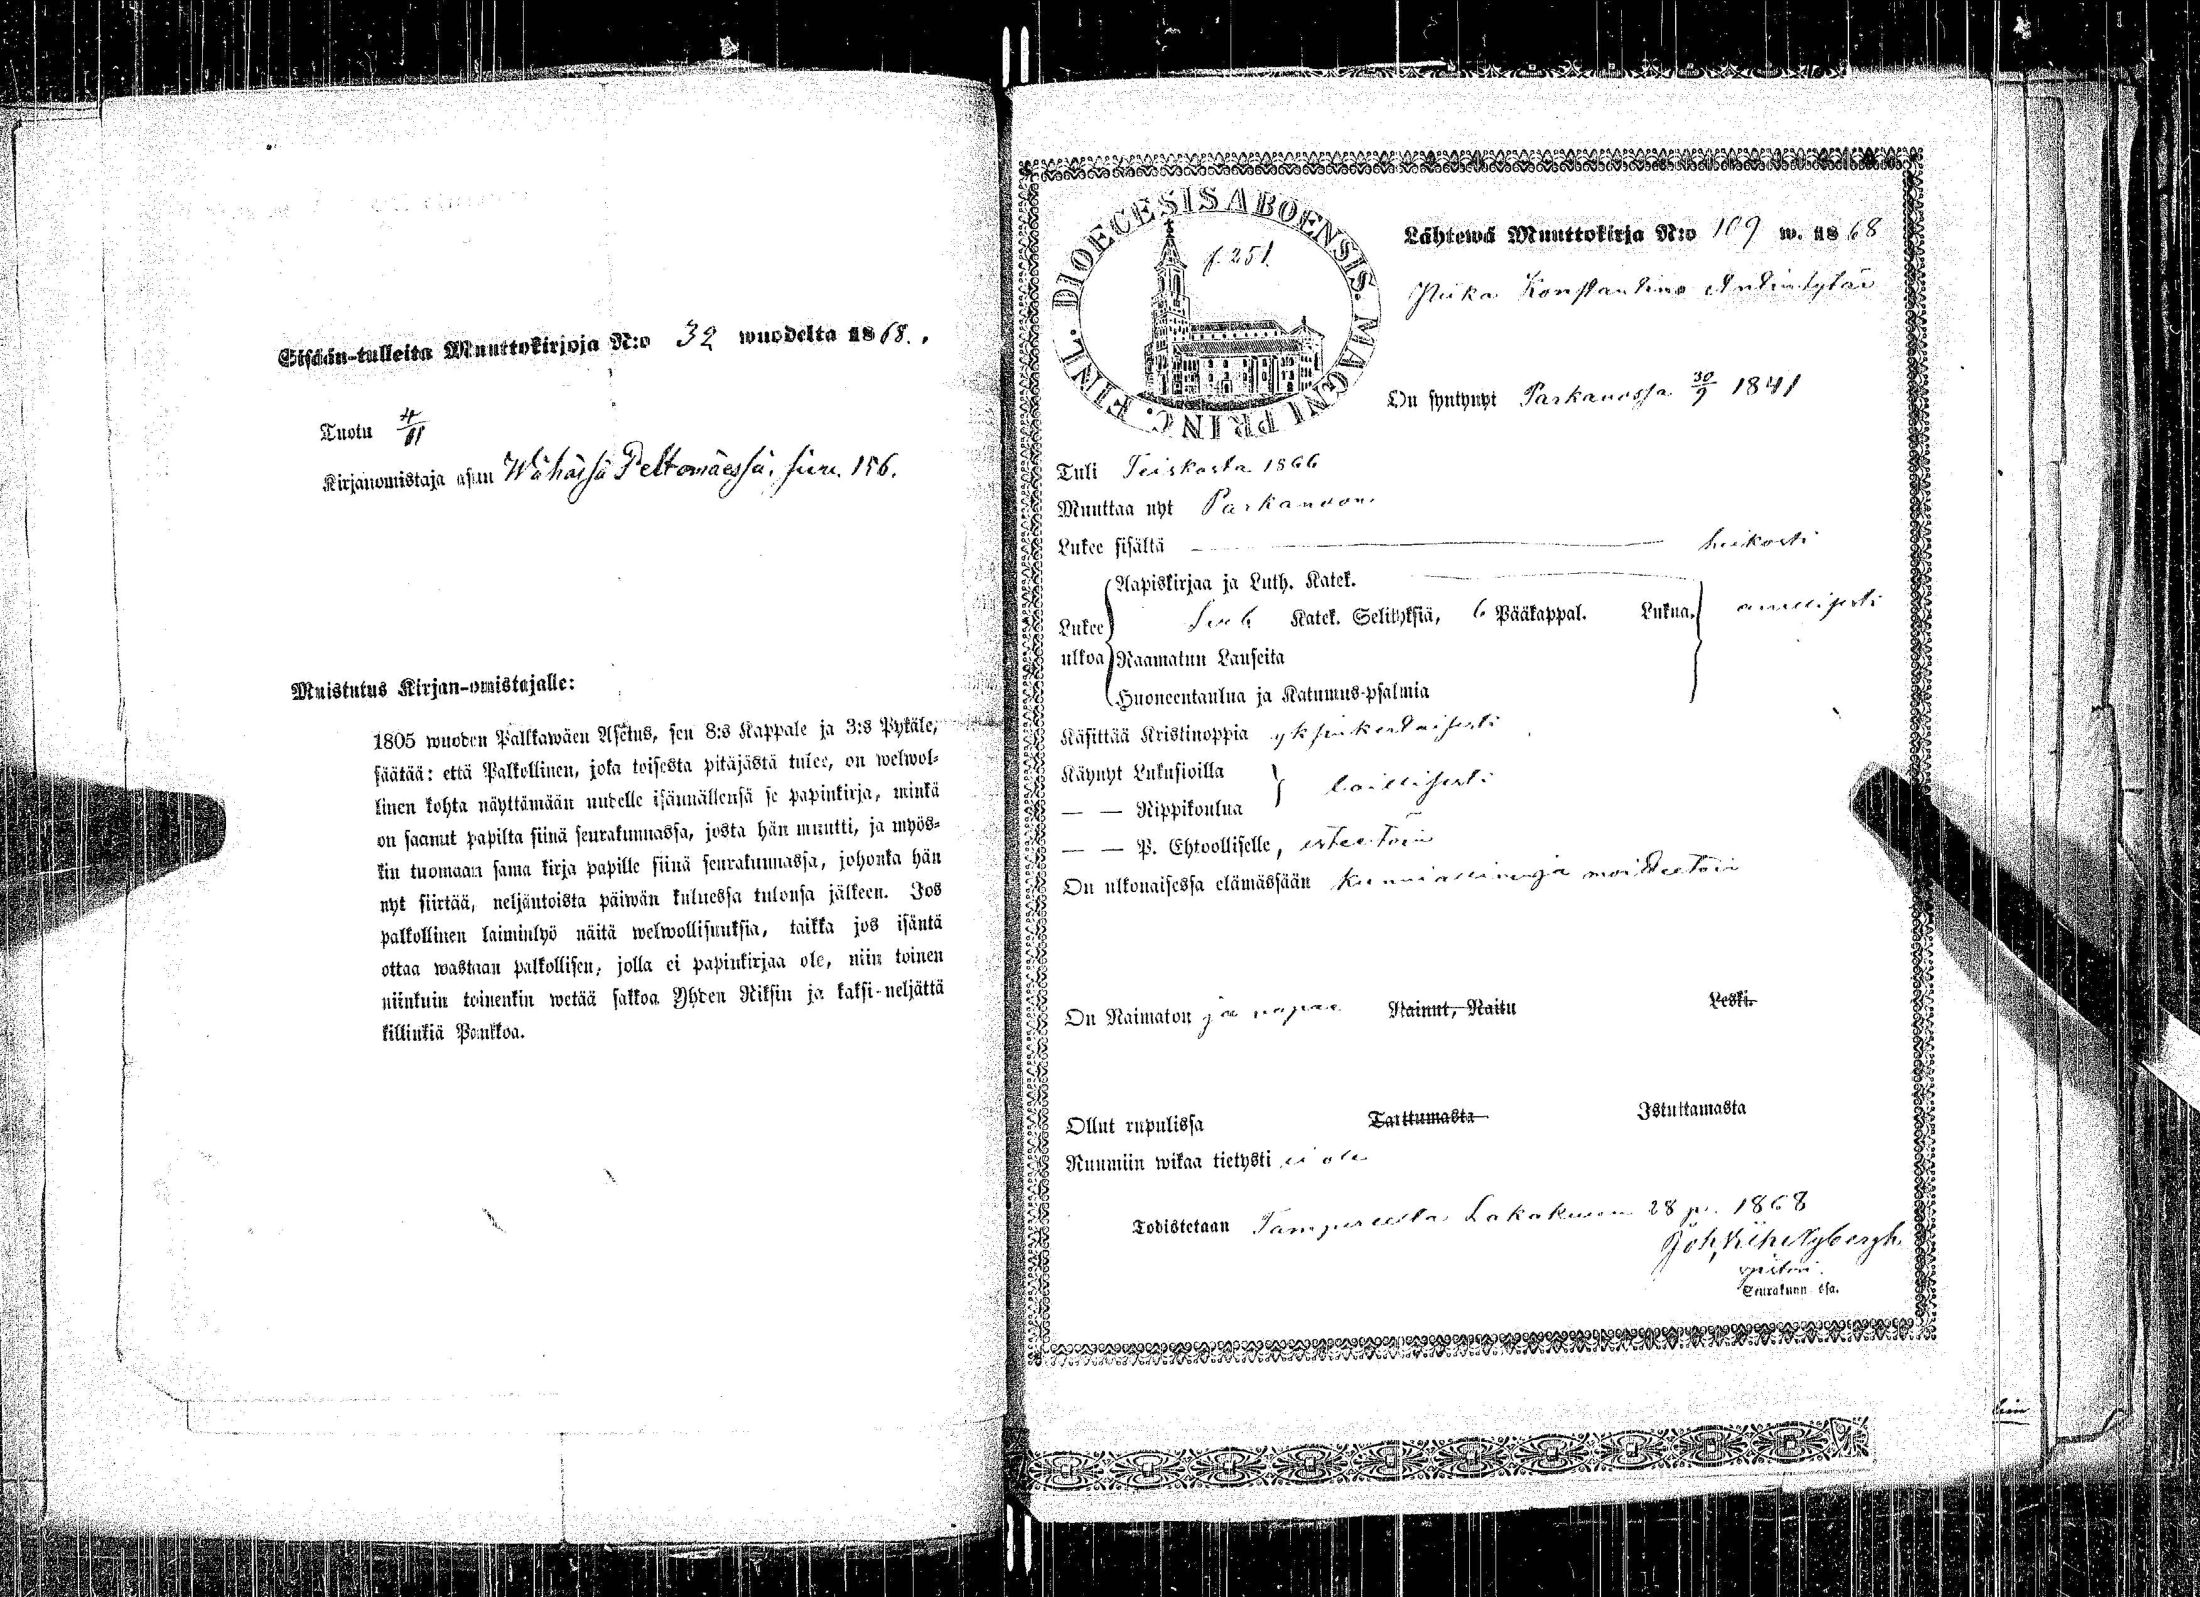 Sisään-tulleita Muuttokirjoja N:o 32 wuodelta 1868.
Tuotu 4/11
Kirjanomistaja asuu Wähässä Peltomäessä. siw. 156.
Muistutus Kirjan-omistajalle:
1805 wuoden Palkkawäen Asetus, sen 8:s Kappale ja 3:s Pykäle,
säätää: että Palkollinen, joka toisesta pitäjästä tulee, on welwol-
linen kohta näyttämään uudelle isännällensä se papinkirja, minkä
on saanut papilta siinä seurakunnassa, josta hän muutti, ja myös-
kin tuomaan sama kirja papille siinä seurakunnassa, johonka hän
nyt siirtää, neljäntoista päiwän kuluessa tulonsa jälkeen. Jos
palkollinen laiminlyö näitä welwollisuuksia, taikka jos isäntä
ottaa wastaan palkollisen, jolla ei papinkirjaa ole, niin toinen
niinkuin toinenkin wetää sakkoa Yhden Riksin ja kaksi-neljättä
killinkiä Pankkoa.
DIOECESIS ABOENSIS. MAGNI PRINC. FINL.
f. 251
Lähtewä Muuttokirja N:o 109 w. 1868
Piika Konstantina Antintytär
On syntynyt Parkanossa 30/9 1841
Tuli Teiskosta 1866
Muuttaa nyt Parkanoon
Lukee sisältä heikosti
Aapiskirjaa ja Luth. Katek.
Lukee Katek. Selityksiä, 6 Pääkappal. Lukua.
ulkoa Raamatun Lauseita
Huoneentaulua ja Katumus-psalmia
Käsittää Kristinoppia yksinkertaisesti
Käynyt Lukusioilla
laillisesti
— — Rippikoulua
— — P. Ehtoolliselle, esteetöin
On ulkonaisessa elämässään kunniallinen ja moitteetoin
On Naimaton ja vapaa Nainut, Naitu Leski.
Ollut rupulissa Tarttumasta Istuttamasta
Ruumiin wikaa tietysti ei ole
Todistetaan Tampereella Lokakuun 28 p. 1868
Nybergh
Seurakunn ssa.